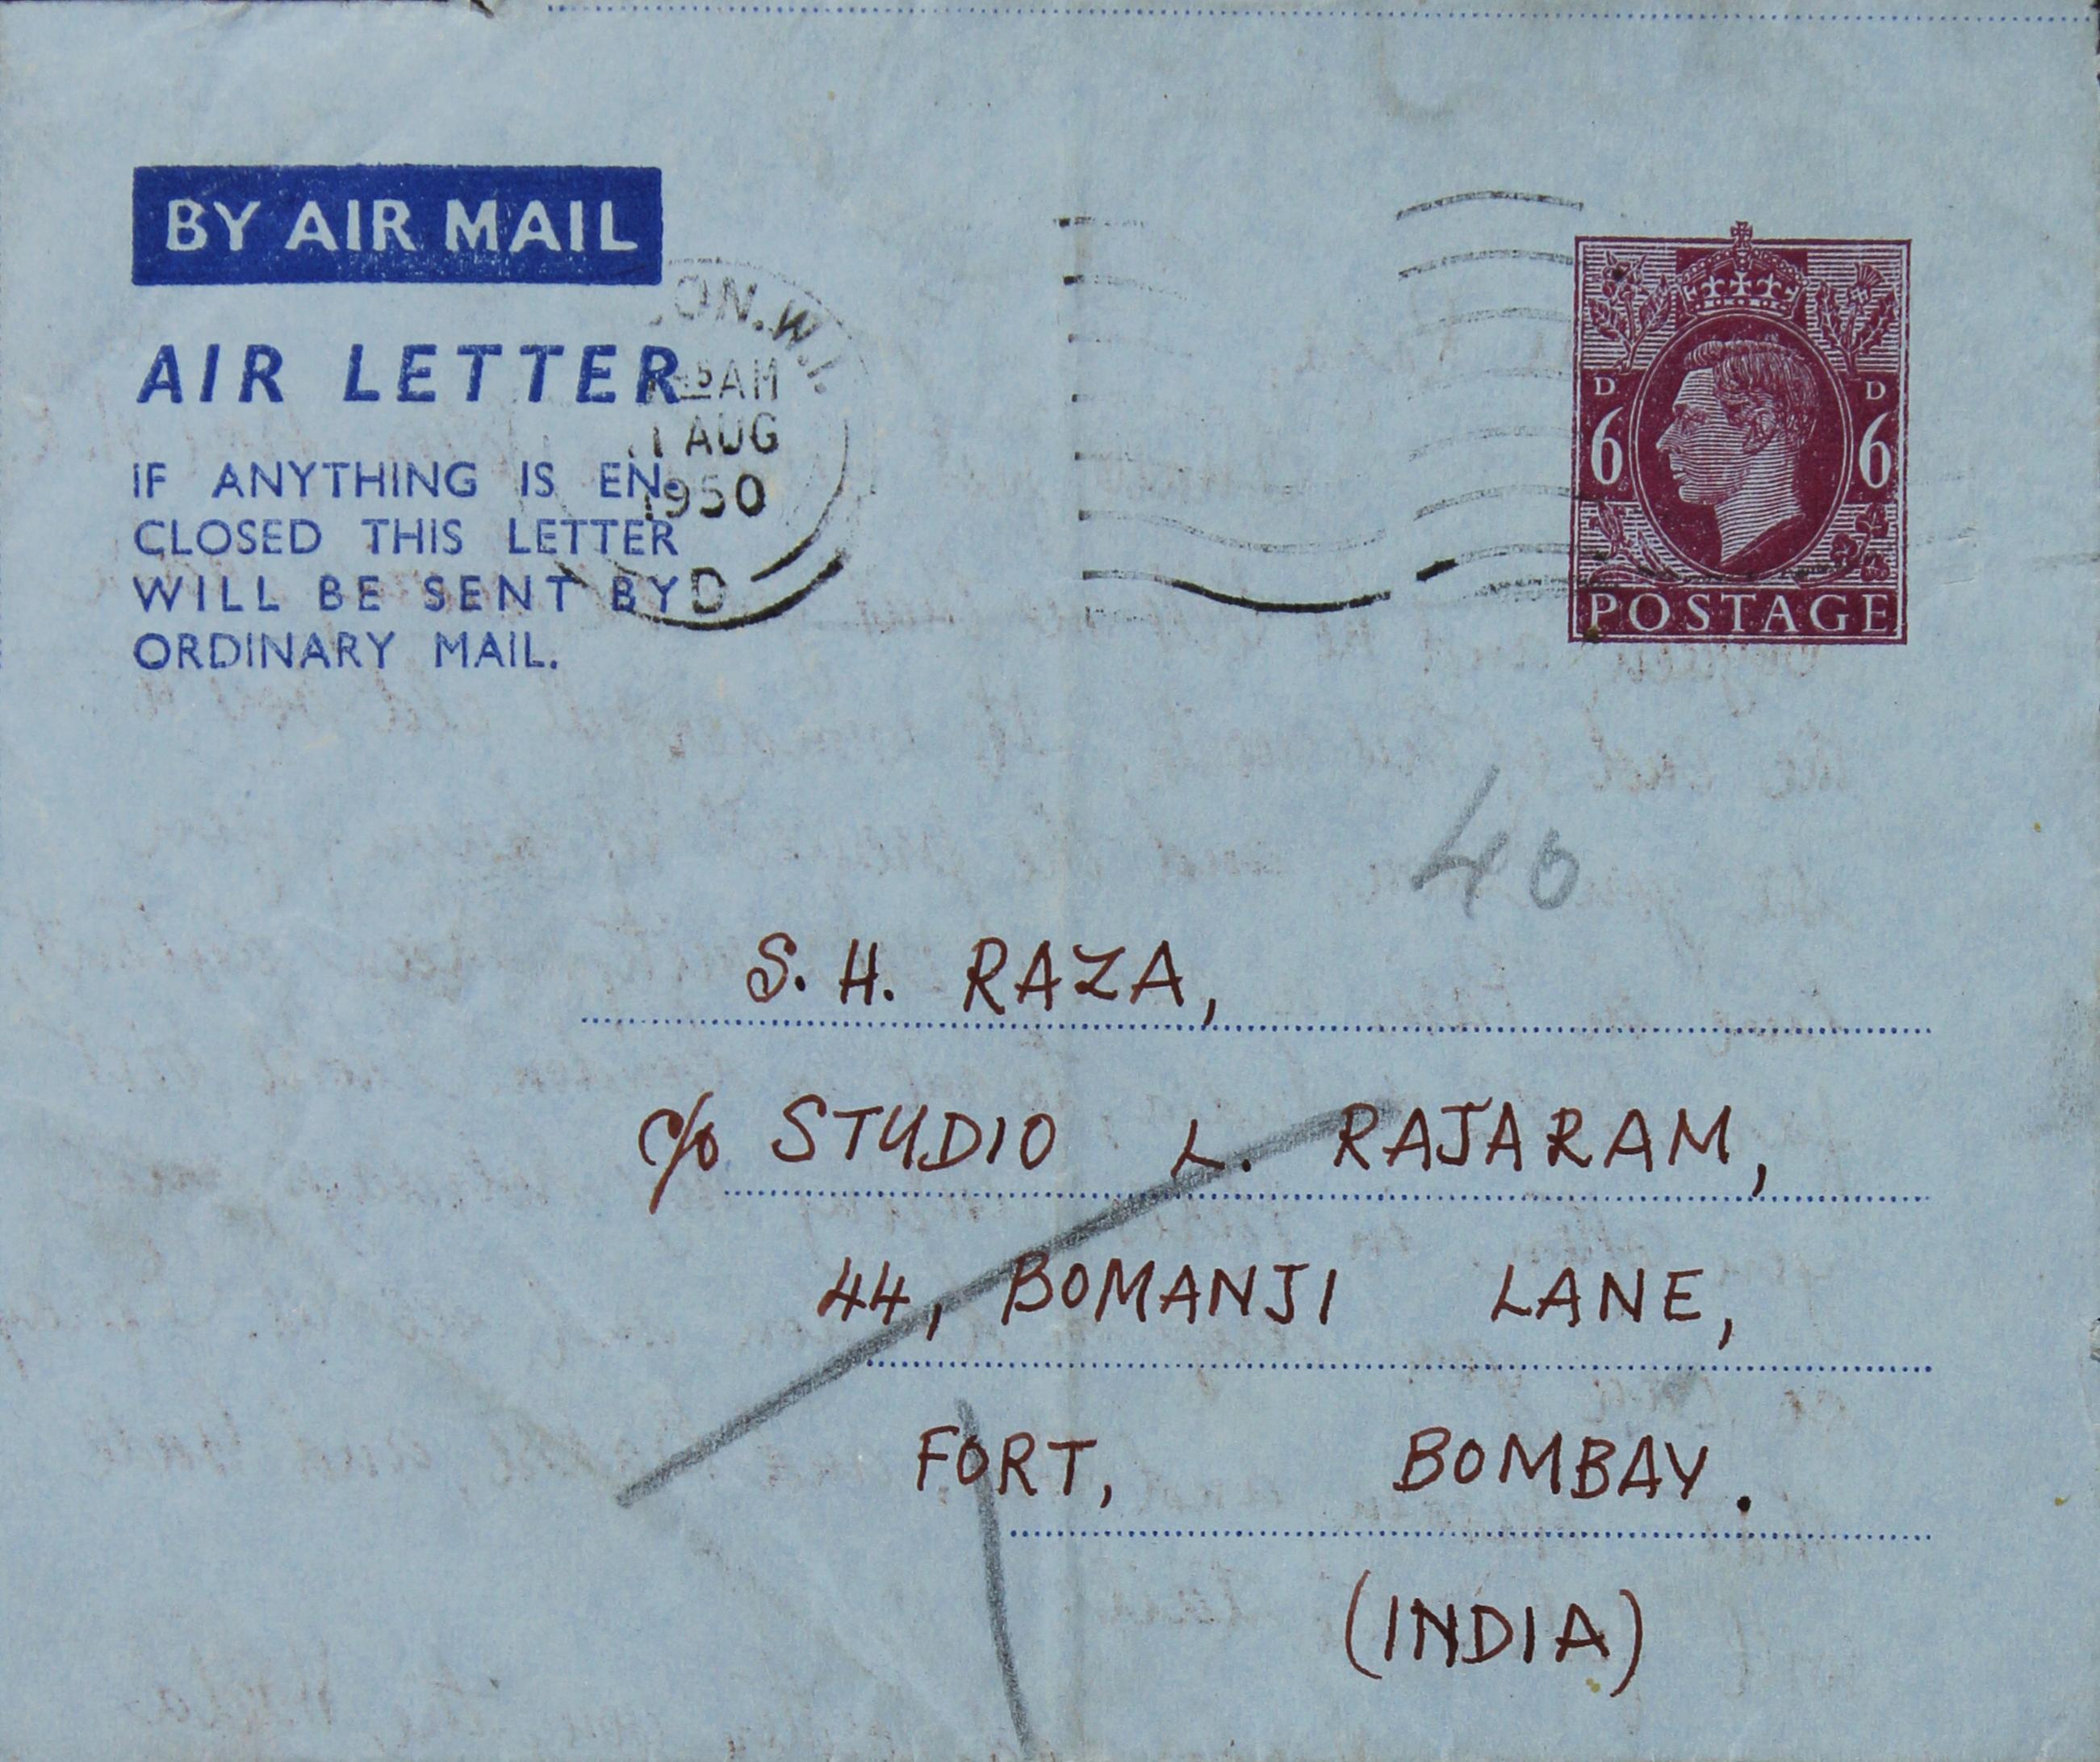 BY AIR MAIL
AIR LETTER
IF ANYTHING IS EN-
CLOSED THIS LETTER
WILL BE SENT BY
ORDINARY MAIL.
ON. W.1.
AM
AUG
1950
D
D D
6 6
POSTAGE
40
S. H. RAZA,
c/o STUDIO L. RAJARAM,
44, BOMANJI LANE,
FORT, BOMBAY.
(INDIA)